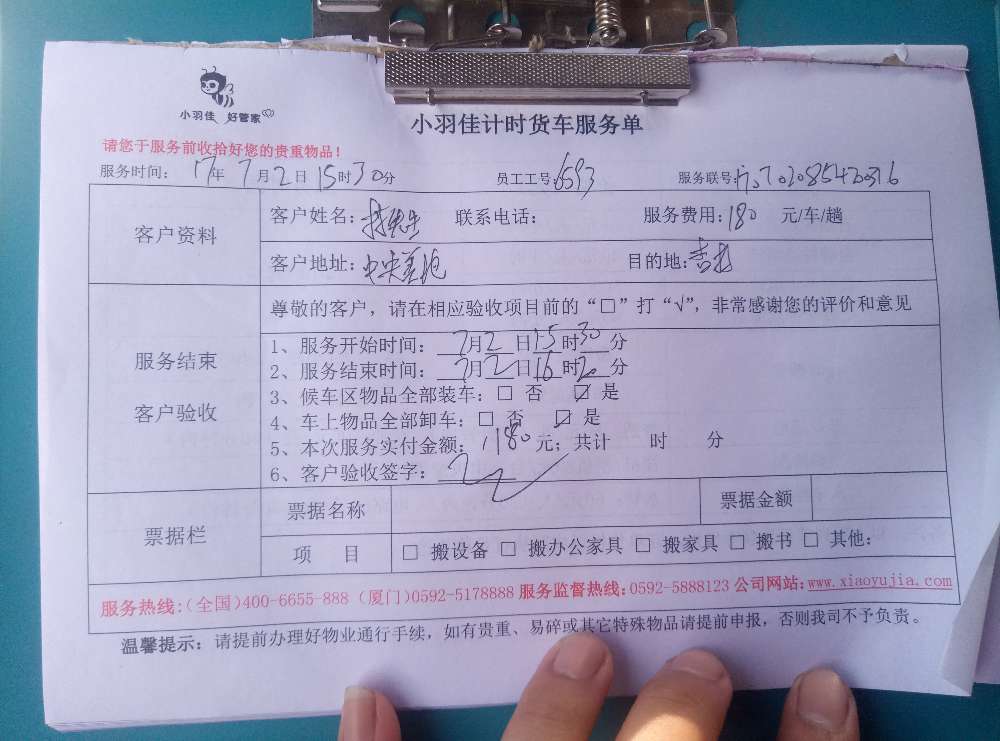 小羽佳 好管家
小羽佳计时货车服务单
请您于服务前收拾好您的贵重物品！
服务时间： 17年 7月2日 15时30分 员工工号： 6593 服务联号：
客户资料
客户姓名： 先生 联系电话： 服务费用：180 元/车/趟
客户地址：中央美地 目的地：杏
尊敬的客户，请在相应验收项目前的“□”打“√”，非常感谢您的评价和意见
服务结束
客户验收
1、服务开始时间： 7月2日15时30分
2、服务结束时间： 7月2日16时20分
3、候车区物品全部装车：□ 否 ☑ 是
4、车上物品全部卸车：□ 否 ☑ 是
5、本次服务实付金额：180元；共计 时 分
6、客户验收签字：
票据栏
票据名称 票据金额
项 目 □ 搬设备 □ 搬办公家具 □ 搬家具 □ 搬书 □ 其他：
服务热线：（全国）400-6655-888（厦门）0592-5178888 服务监督热线：0592-5888123 公司网站：www.xiaoyujia.com
温馨提示：请提前办理好物业通行手续，如有贵重、易碎或其它特殊物品请提前申报，否则我司不予负责。